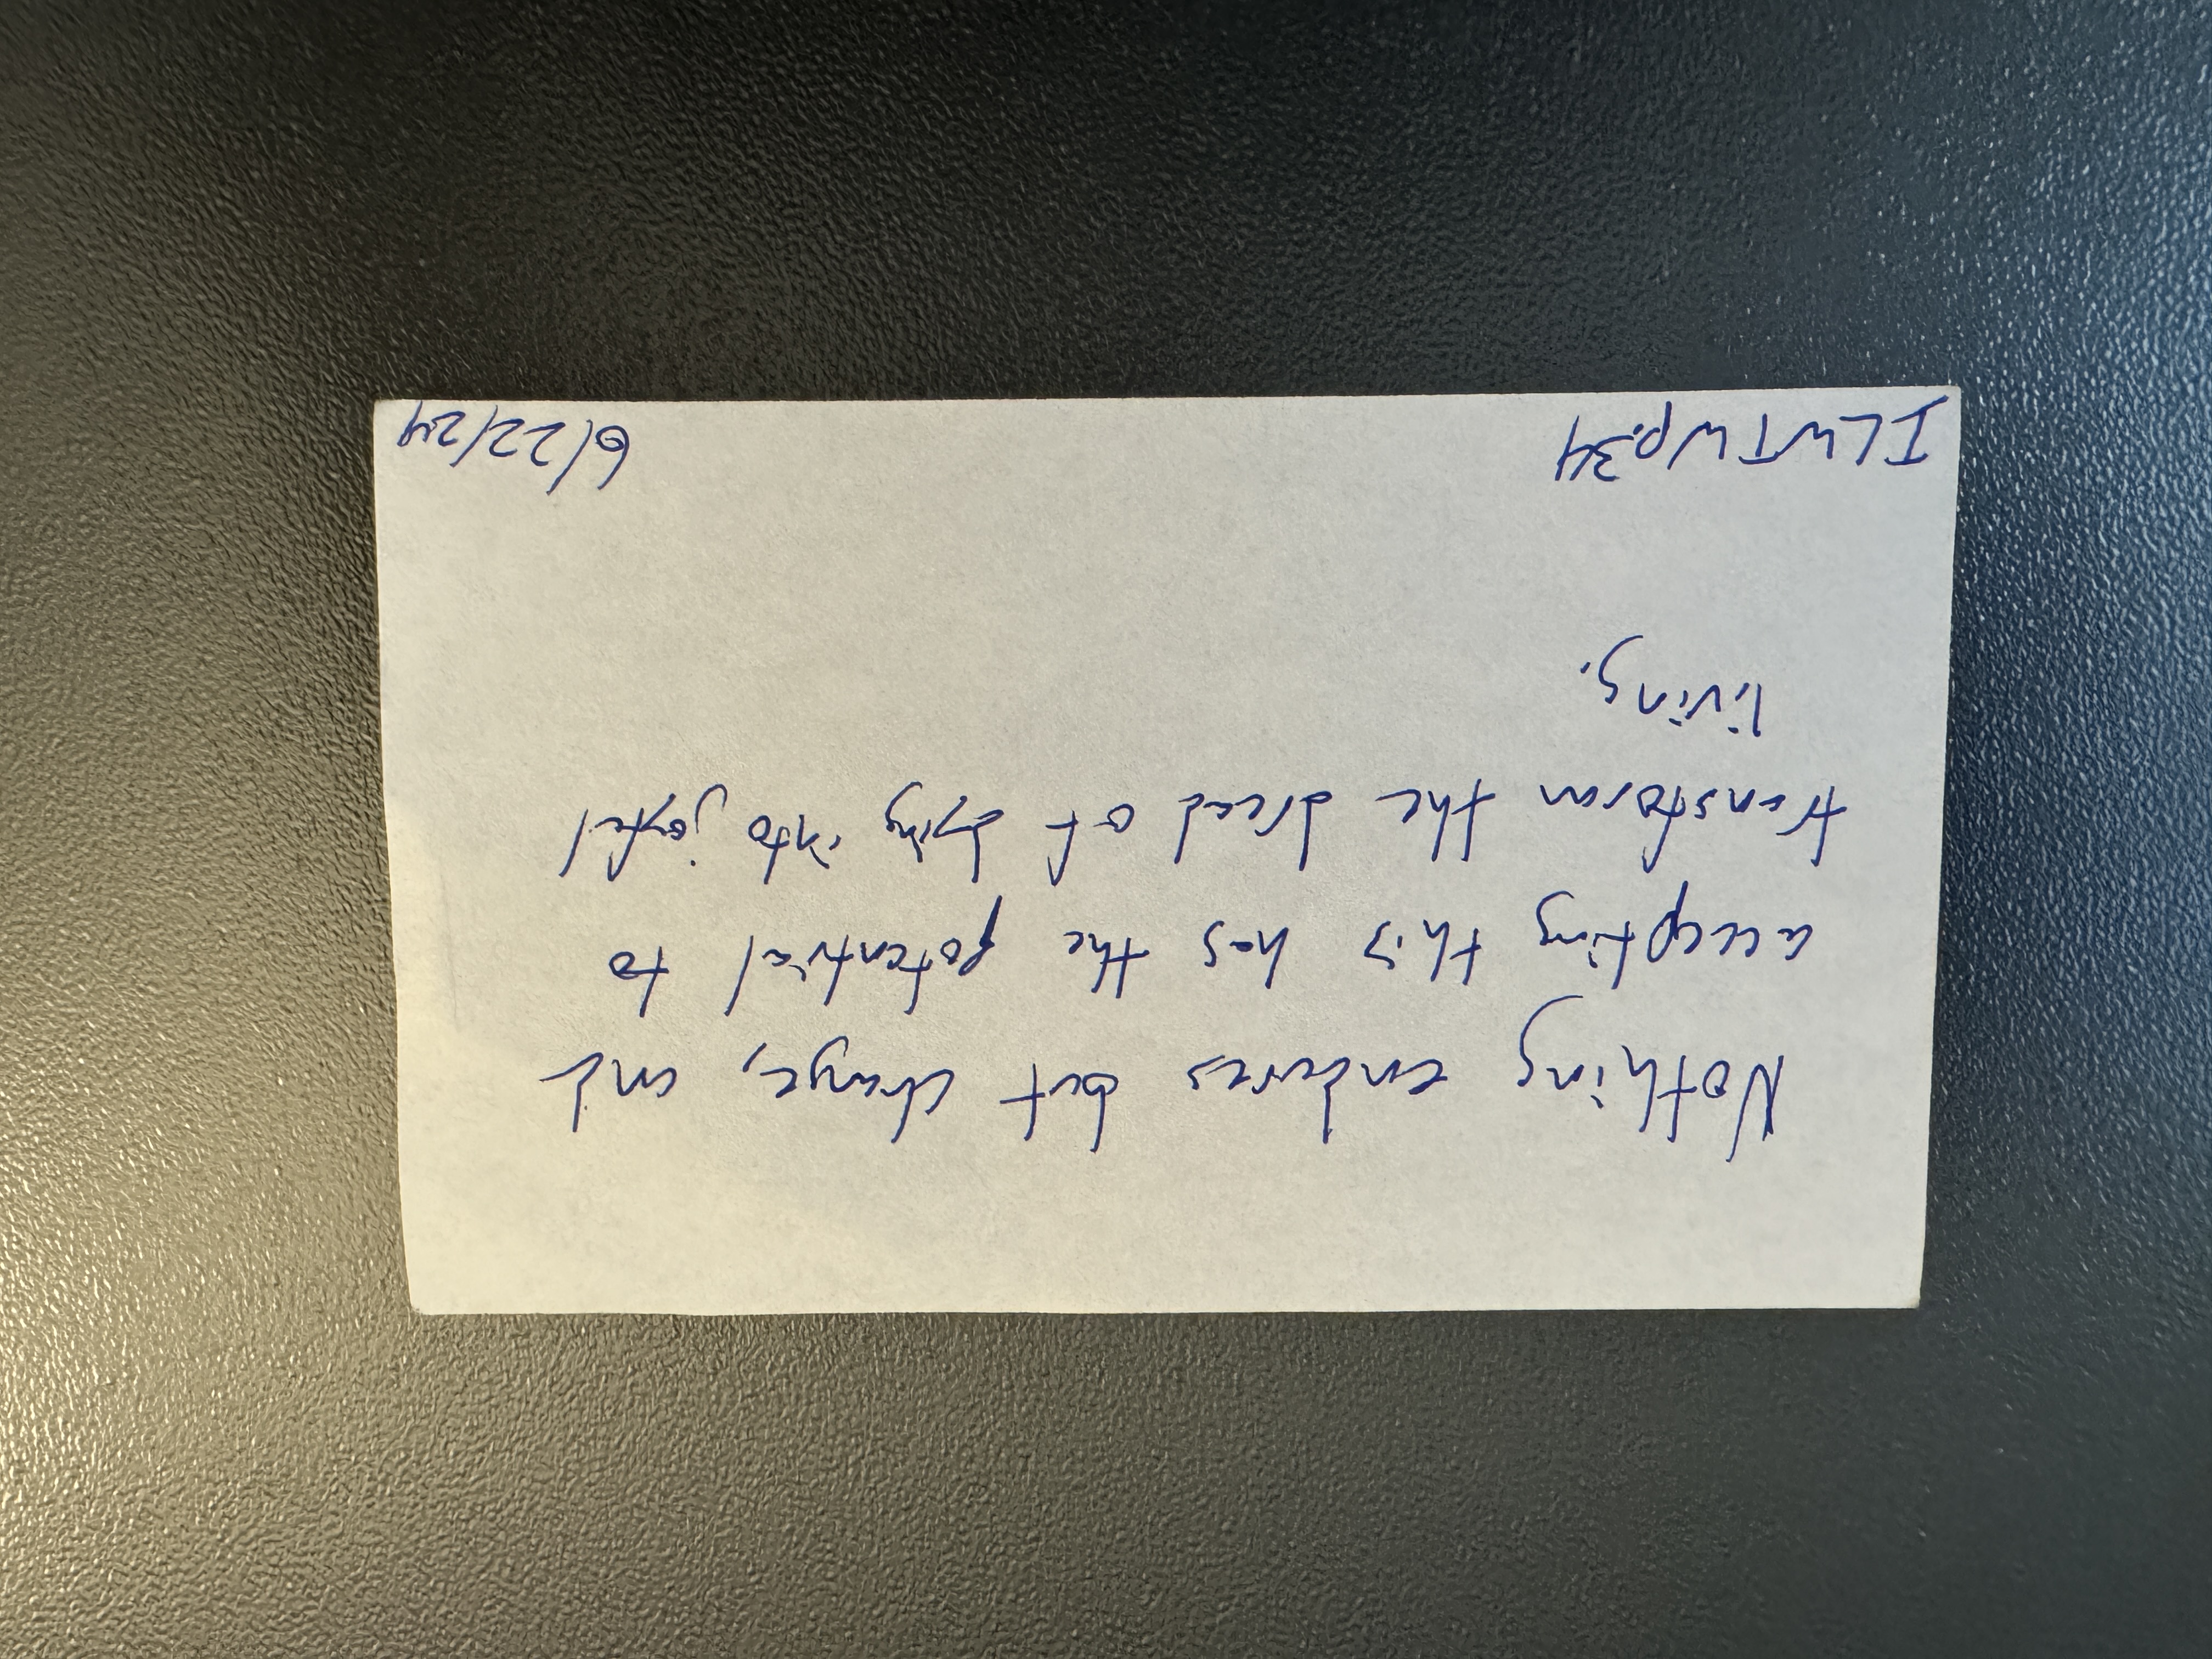 Nothing endures but change, and
accepting this has the potential to
transform the dread of dying into joyful
living.
ILWTW p.34
6/22/24